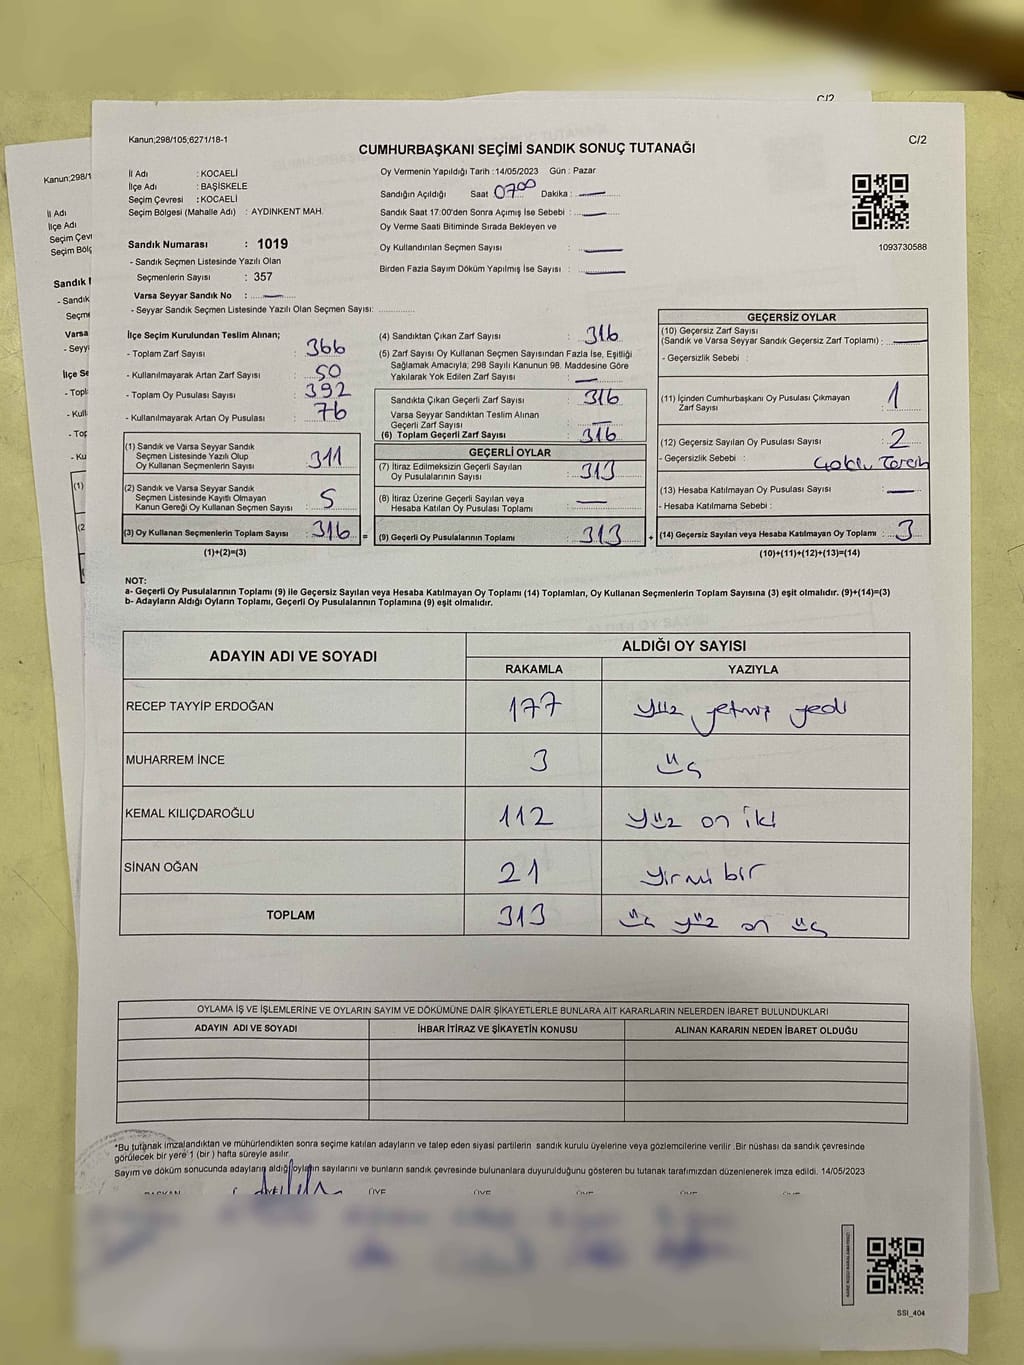 C/2
Kanun;298/105;6271/18-1
C/2
CUMHURBAŞKANI SEÇİMİ SANDIK SONUÇ TUTANAĞI
İl Adı : KOCAELİ
İlçe Adı : BAŞİSKELE
Seçim Çevresi : KOCAELİ
Seçim Bölgesi (Mahalle Adı) : AYDINKENT MAH.
Sandık Numarası : 1019
- Sandık Seçmen Listesinde Yazılı Olan
Seçmenlerin Sayısı : 357
Varsa Seyyar Sandık No :
- Seyyar Sandık Seçmen Listesinde Yazılı Olan Seçmen Sayısı:
Oy Vermenin Yapıldığı Tarih :14/05/2023 Gün : Pazar
Sandığın Açıldığı Saat 0700 Dakika :
Sandık Saat 17:00'den Sonra Açımış İse Sebebi :
Oy Verme Saati Bitiminde Sırada Bekleyen ve
Oy Kullandırılan Seçmen Sayısı :
Birden Fazla Sayım Döküm Yapılmış İse Sayısı :
1093730588
İlçe Seçim Kurulundan Teslim Alınan;
- Toplam Zarf Sayısı : 366
- Kullanılmayarak Artan Zarf Sayısı : 50
- Toplam Oy Pusulası Sayısı : 392
- Kullanılmayarak Artan Oy Pusulası : 76
(1) Sandık ve Varsa Seyyar Sandık
Seçmen Listesinde Yazılı Olup
Oy Kullanan Seçmenlerin Sayısı : 311
(2) Sandık ve Varsa Seyyar Sandık
Seçmen Listesinde Kayıtlı Olmayan
Kanun Gereği Oy Kullanan Seçmen Sayısı : 5
(3) Oy Kullanan Seçmenlerin Toplam Sayısı : 316
(1)+(2)=(3)
(4) Sandıktan Çıkan Zarf Sayısı : 316
(5) Zarf Sayısı Oy Kullanan Seçmen Sayısından Fazla İse, Eşitliği
Sağlamak Amacıyla; 298 Sayılı Kanunun 98. Maddesine Göre
Yakılarak Yok Edilen Zarf Sayısı :
Sandıkta Çıkan Geçerli Zarf Sayısı : 316
Varsa Seyyar Sandıktan Teslim Alınan
Geçerli Zarf Sayısı :
(6) Toplam Geçerli Zarf Sayısı : 316
GEÇERLİ OYLAR
(7) İtiraz Edilmeksizin Geçerli Sayılan
Oy Pusulalarının Sayısı : 313
(8) İtiraz Üzerine Geçerli Sayılan veya
Hesaba Katılan Oy Pusulası Toplamı :
= (9) Geçerli Oy Pusulalarının Toplamı : 313 +
GEÇERSİZ OYLAR
(10) Geçersiz Zarf Sayısı
(Sandık ve Varsa Seyyar Sandık Geçersiz Zarf Toplamı) :
- Geçersizlik Sebebi :
(11) İçinden Cumhurbaşkanı Oy Pusulası Çıkmayan
Zarf Sayısı : 1
(12) Geçersiz Sayılan Oy Pusulası Sayısı : 2
- Geçersizlik Sebebi : Çoklu Tercih
(13) Hesaba Katılmayan Oy Pusulası Sayısı :
- Hesaba Katılmama Sebebi :
(14) Geçersiz Sayılan veya Hesaba Katılmayan Oy Toplamı : 3
(10)+(11)+(12)+(13)=(14)
NOT:
a- Geçerli Oy Pusulalarının Toplamı (9) ile Geçersiz Sayılan veya Hesaba Katılmayan Oy Toplamı (14) Toplamları, Oy Kullanan Seçmenlerin Toplam Sayısına (3) eşit olmalıdır. (9)+(14)=(3)
b- Adayların Aldığı Oyların Toplamı, Geçerli Oy Pusulalarının Toplamına (9) eşit olmalıdır.
ADAYIN ADI VE SOYADI ALDIĞI OY SAYISI
RAKAMLA YAZIYLA
RECEP TAYYİP ERDOĞAN 177 yüz yetmiş yedi
MUHARREM İNCE 3 üç
KEMAL KILIÇDAROĞLU 112 yüz on iki
SİNAN OĞAN 21 yirmi bir
TOPLAM 313 üç yüz on üç
OYLAMA İŞ VE İŞLEMLERİNE VE OYLARIN SAYIM VE DÖKÜMÜNE DAİR ŞİKAYETLERLE BUNLARA AİT KARARLARIN NELERDEN İBARET BULUNDUKLARI
ADAYIN ADI VE SOYADI İHBAR İTİRAZ VE ŞİKAYETİN KONUSU ALINAN KARARIN NEDEN İBARET OLDUĞU
*Bu tutanak imzalandıktan ve mühürlendikten sonra seçime katılan adayların ve talep eden siyasi partilerin sandık kurulu üyelerine veya gözlemcilerine verilir .Bir nüshası da sandık çevresinde
görülecek bir yere 1 (bir ) hafta süreyle asılır.
Sayım ve döküm sonucunda adayların aldığı oyların sayılarını ve bunların sandık çevresinde bulunanlara duyurulduğunu gösteren bu tutanak tarafımızdan düzenlenerek imza edildi. 14/05/2023
SSI_404